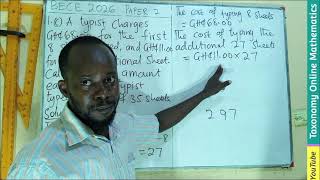 BECE 2026 PAPER 2
1.(c) A typist charges
GH¢68.00 for the first
GH¢11.00
Sheet.
amount
typist
of 35 sheets
-8
=27
The cost of typing 8 sheets
= GH¢68.00
The cost of typing the
additional 27 sheets
= GH¢11.00 × 27
297
Taxonomy Online Mathematics
YouTube